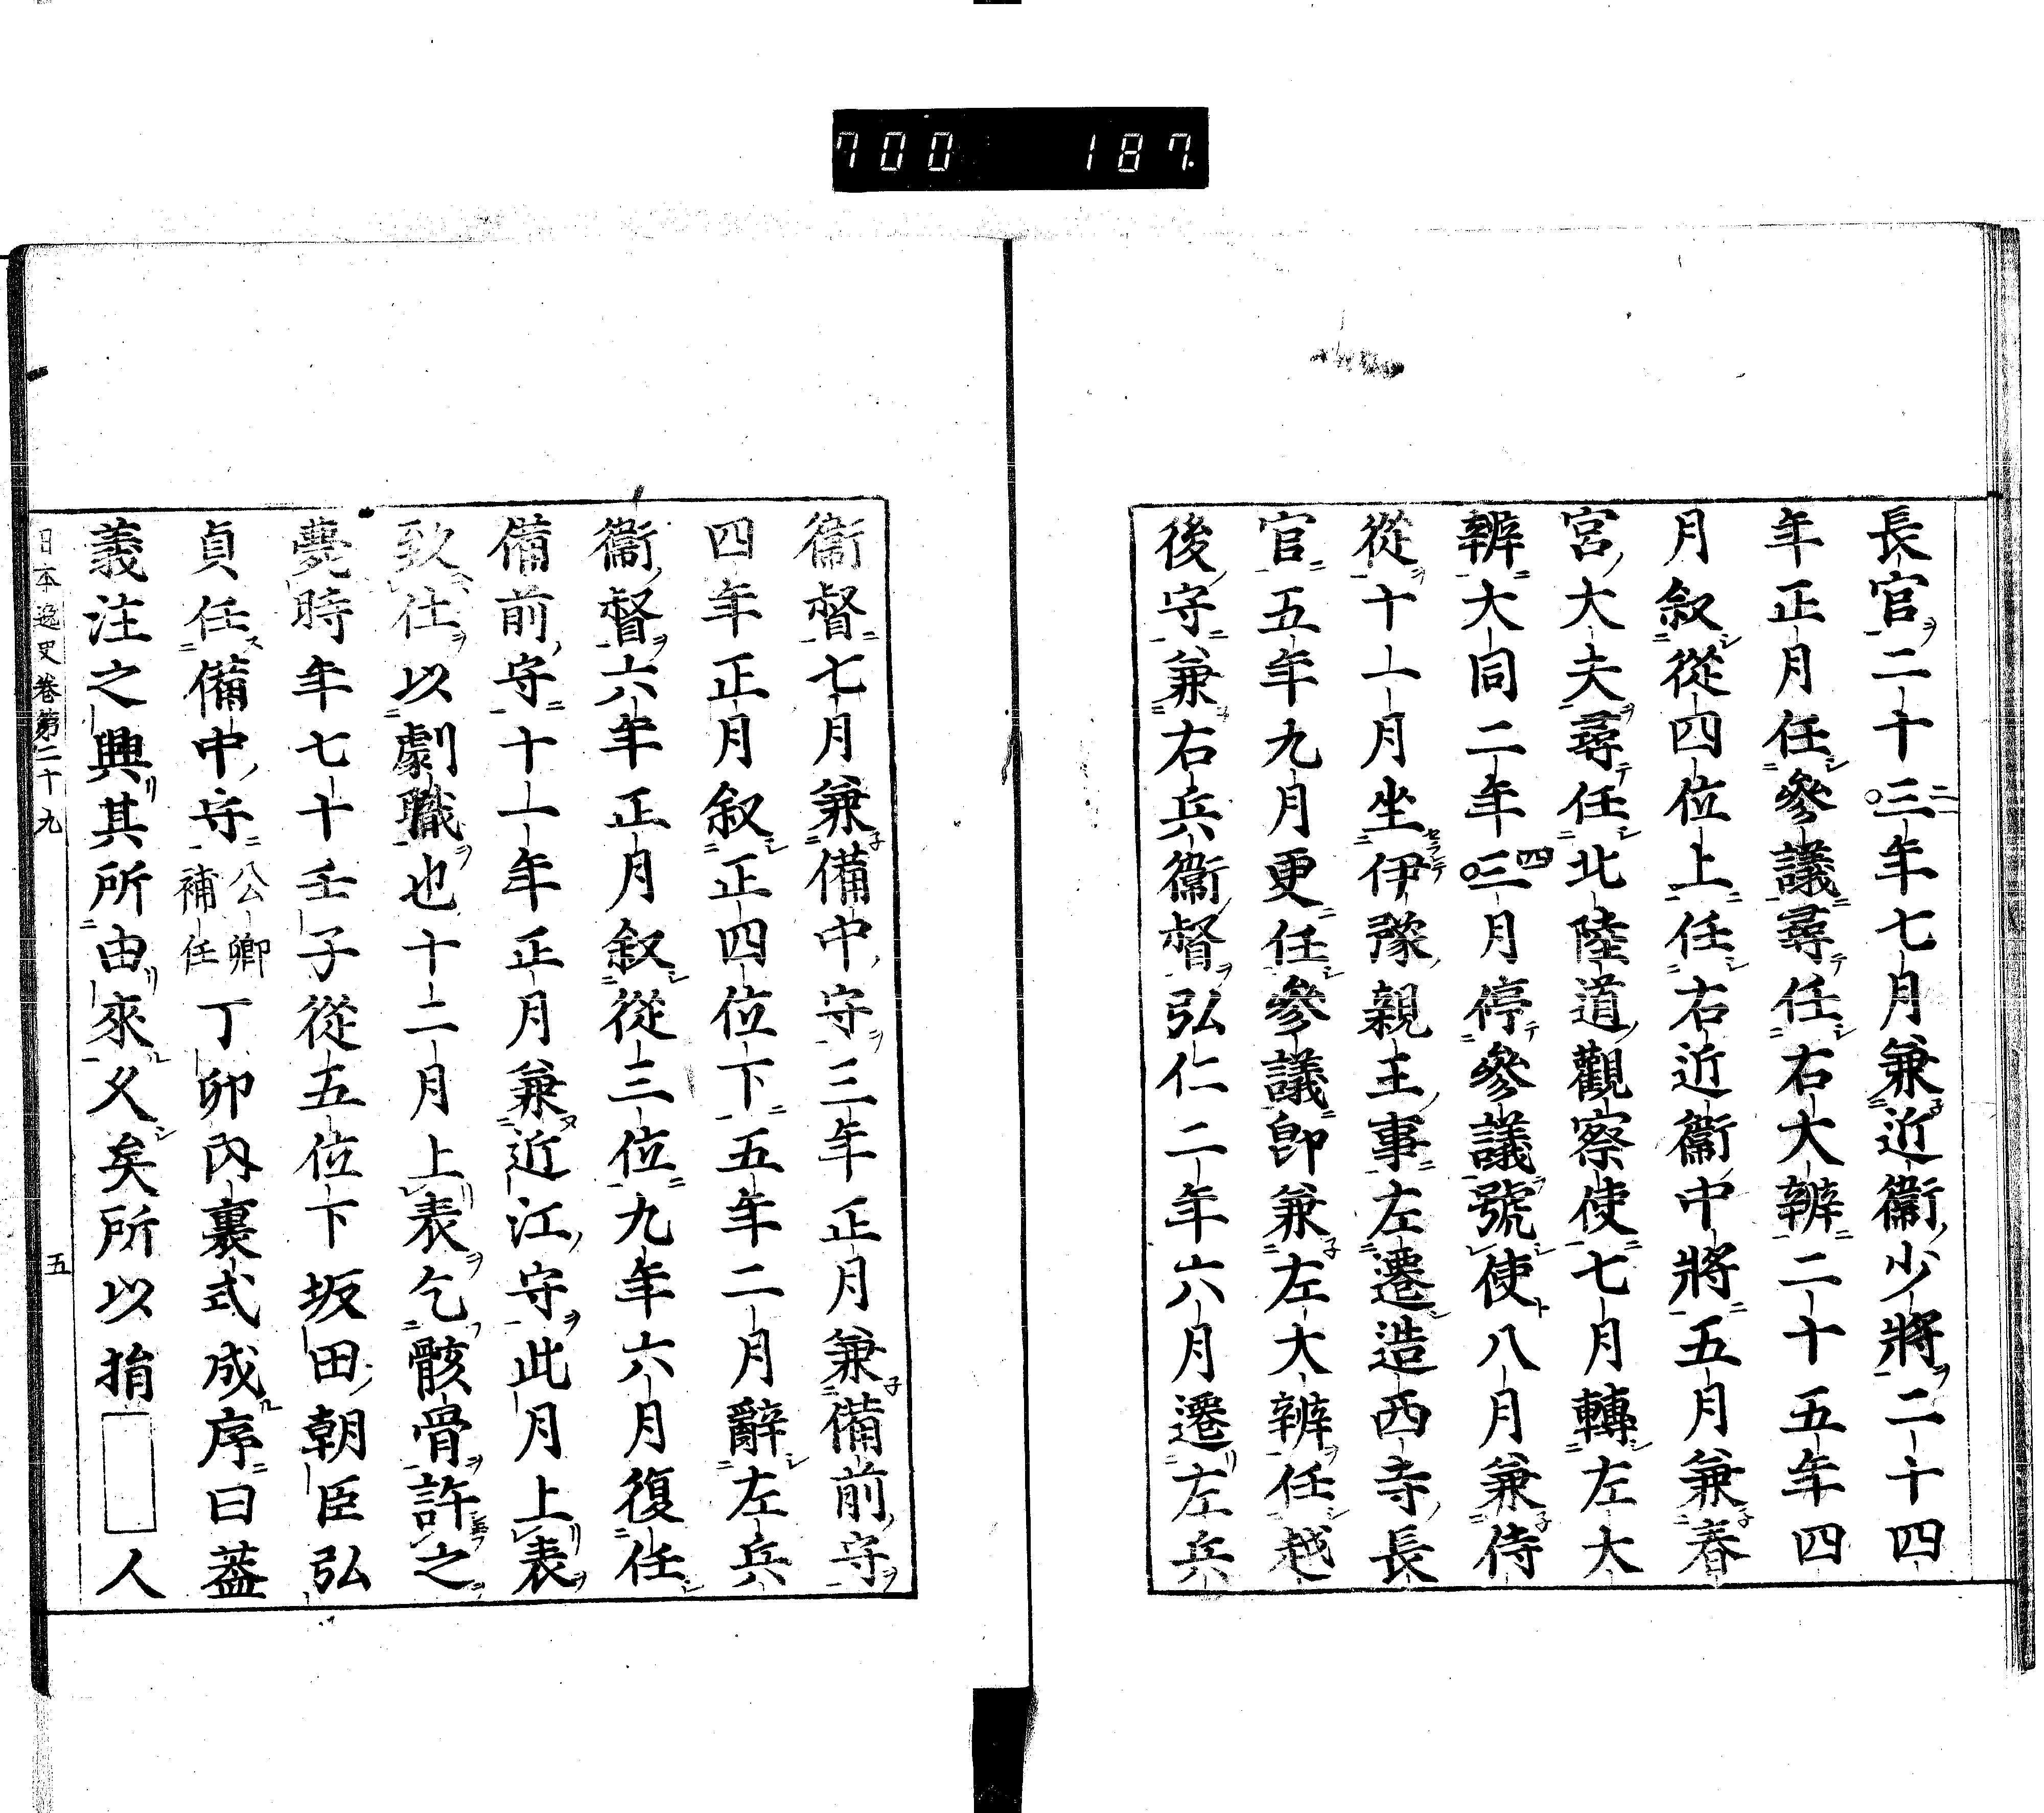 700 187
長官二十三年七月兼近衞少將二十四
年正月任參議尋任右大辨二十五年四
月叙從四位上任右近衞中將五月兼春
宮大夫尋任北陸道觀察使七月轉左大
辨大同二年三月停參議號使八月兼侍
從十一月坐伊豫親王事左遷造西寺長
官五年九月更任參議卽兼左大辨任越
後守兼右兵衞督弘仁二年六月遷左兵
衞督七月兼備中守三年正月兼備前守
四年正月叙正四位下五年二月辭左兵
衞督六年正月叙從三位九年六月復任
備前守十一年正月兼近江守此月上表
致仕以劇職也十二月上表乞骸骨許之
薨時年七十壬子從五位下坂田朝臣弘
貞任備中守公卿補任丁卯內裏式成序曰蓋
義注之興其所由來乂矣所以揖 人
日本逸史卷第二十九 五